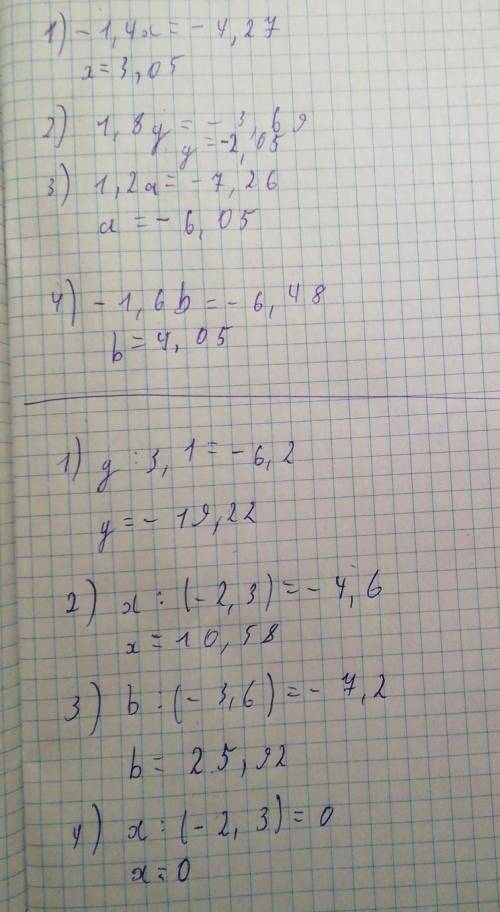 1) - 1,4x = - 4,27
x = 3,05
2) 1,8y = - 3,69
y = -2,05
3) 1,2a = - 7,26
a = - 6,05
4) - 1,6b = - 6,48
b = 4,05
1) y : 3,1 = - 6,2
y = - 19,22
2) x : (- 2,3) = - 4,6
x = 10,58
3) b : (- 3,6) = - 7,2
b = 25,92
4) x : (- 2,3) = 0
x = 0